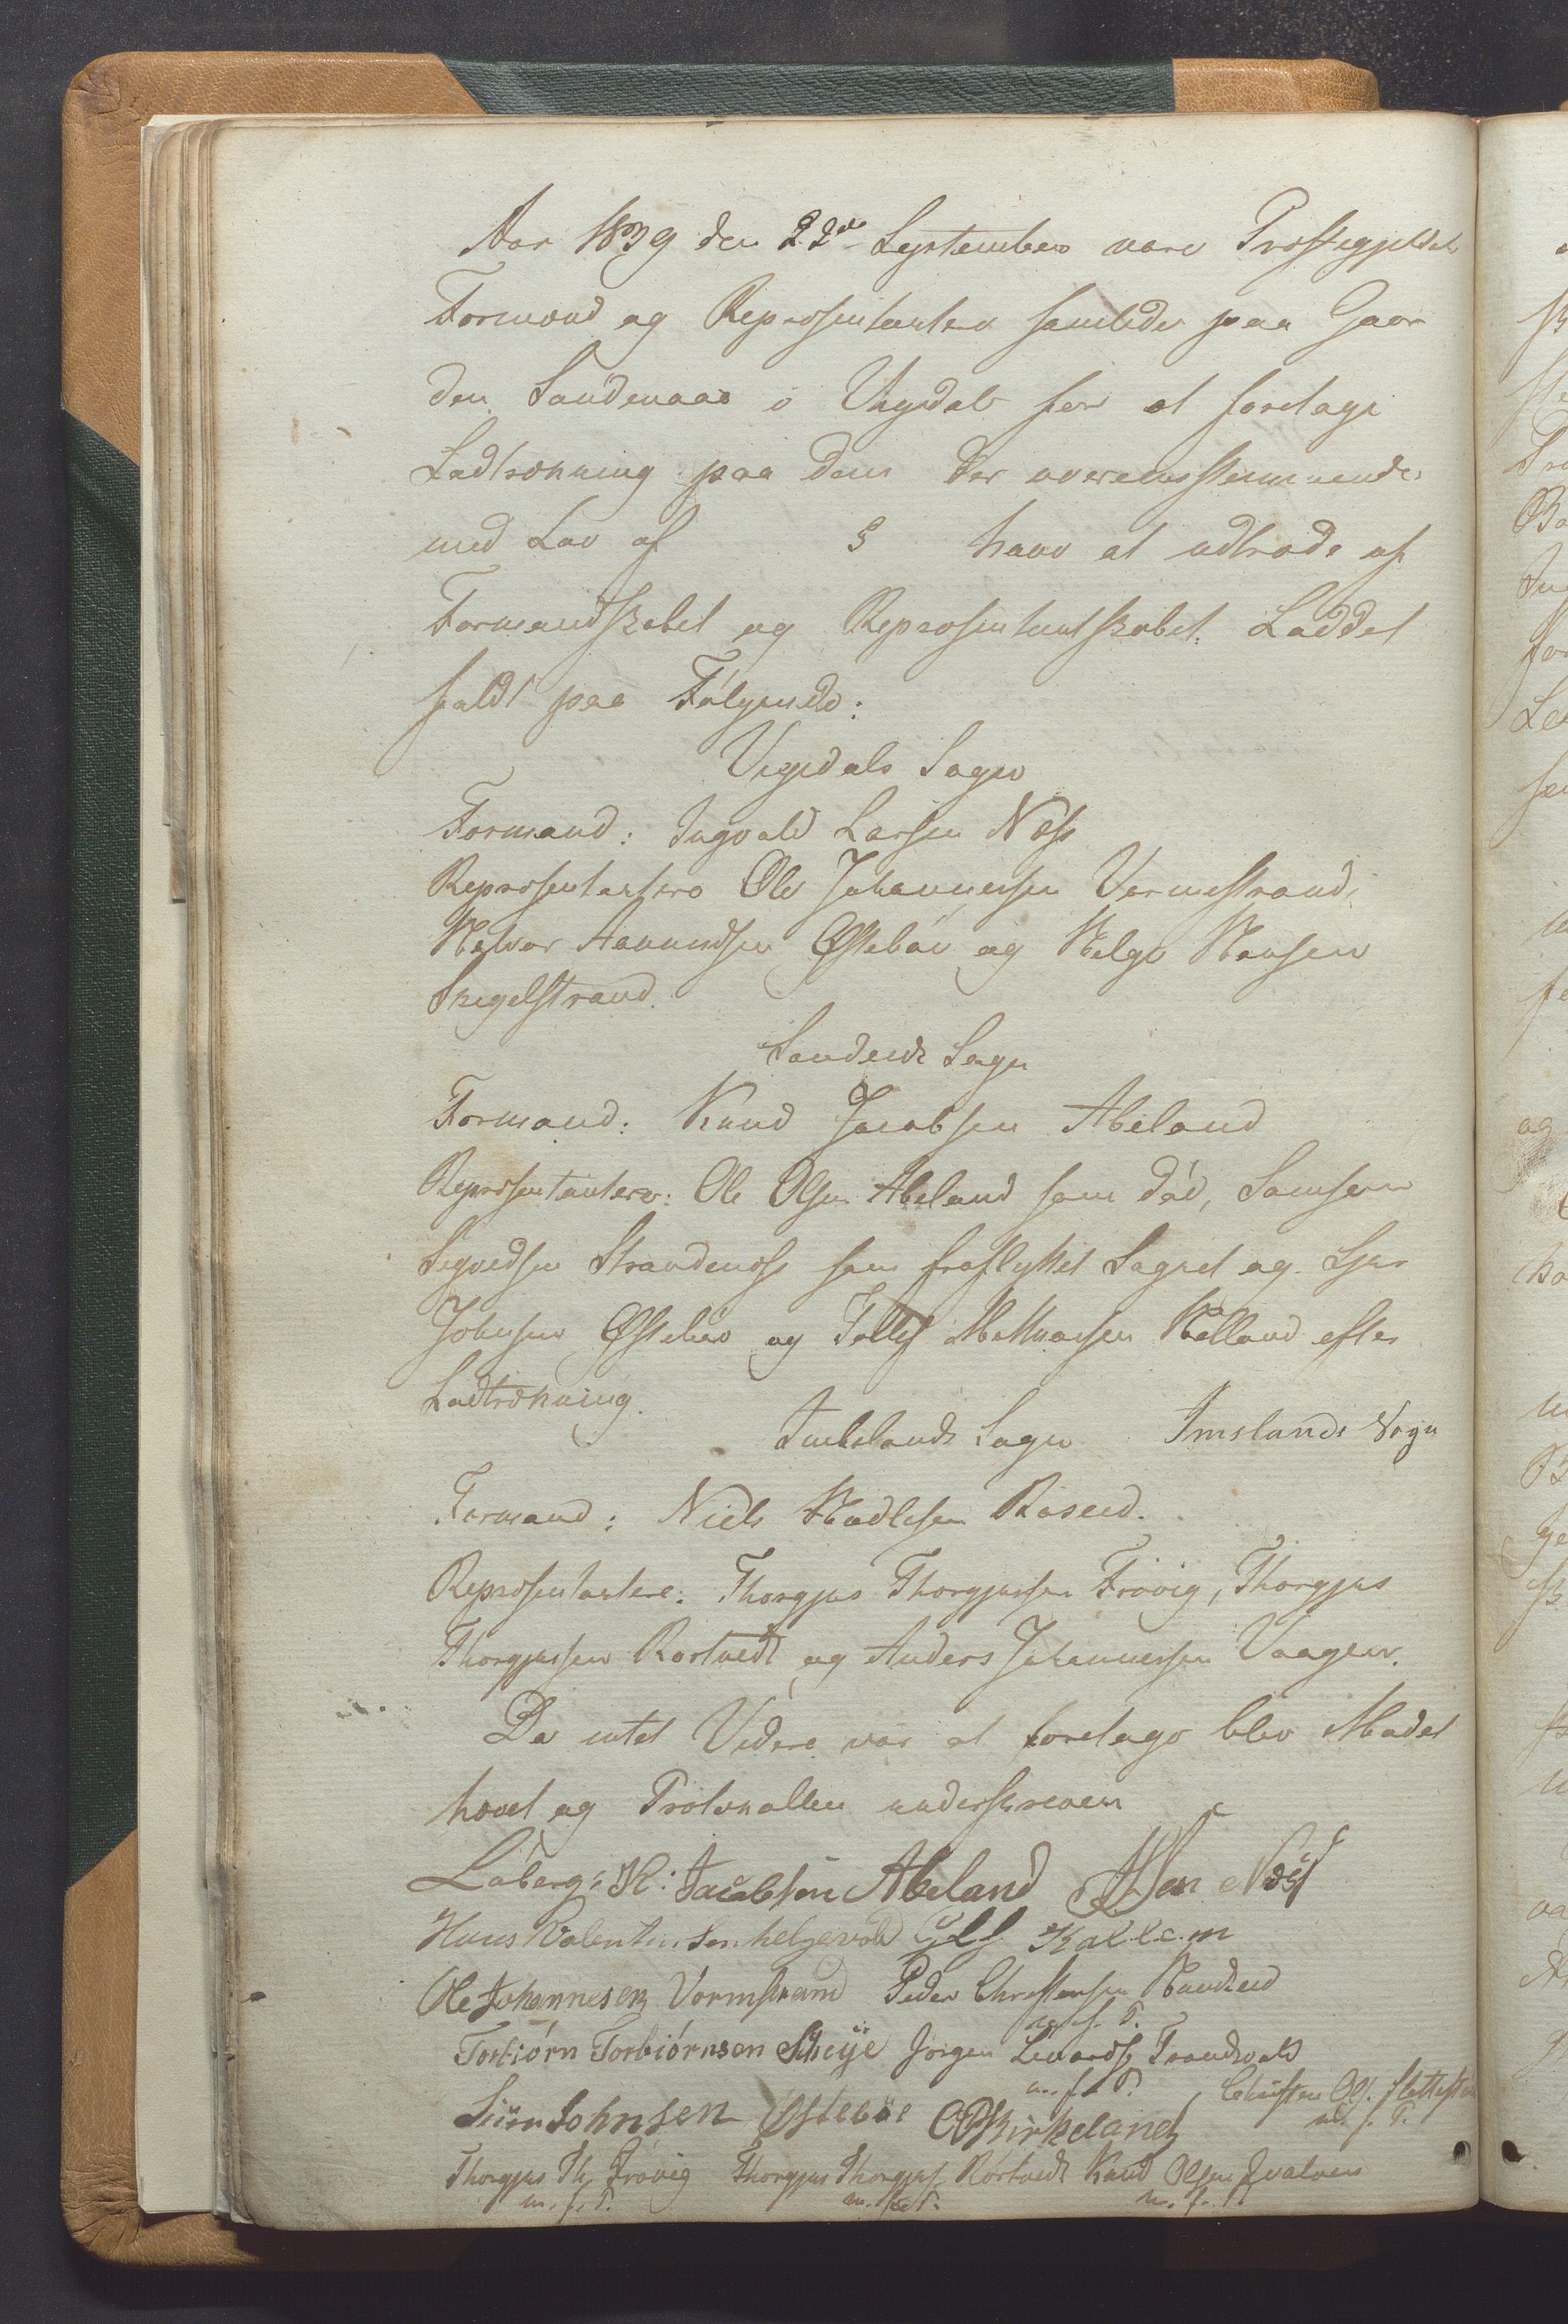 Aar 1839 den 22de September vare Præstegjeldets
Formænd og Repræsentantere samlede paa Gaar
den Sandenaas i Vigedal for at foretage
Lodtrækning paa dem der overensstemmende
med Lov af § have at udtræde af
Formandskabet og Repræsentantskabet. Loddet
faldt paa Følgende:
Vigedals Sogn
Formand: Ingvald Larsen Næss
Repræsentantere Ole Johannessen Vormestrand,
Halvor Aamundsen Østebøe og Helge Hansen
Skegelstrand.
Sandeids Sogn
Formand: Knud Jacobsen Abeland
Repræsentantere: Ole Olsen Abeland som død, Samson
Sigvedsen Strandenæs som fraflyttet Sognet og Sjur
Johnsen Østebøe og Tollef Helland efter
Lodtrækning.
Imslands Sogn Imslands Sogn
Formand: Niels Hadlesen Røseid.
Repræsentantere: Thorgjus Thorgjussen Frøvig, Thorgjus
Thorgjussen Rørtvedt og Anders Johannessen Vaagen.
Da intet Videre var at foretage blev Mødet
hævet og Protokollen underskreven
Løberg K: Jacobsen Abeland Næss
Hans Valentinsen helgevold Kallem
Ole Johannesen Vormstrand Peder Christensen Handeid
m. f. P.
Torbiörn Torbiörnsen Scheije Jørgen Trondsvold
m. f. P. Christen Ols.
Siur Johnsen Østeböe Birkeland m. f. P.
Thorgjus Th. Frøvig Thorgjus Thorgjus. Rørtvedt Knud Olsen
m. f. P. m. f. P. m. f. P.